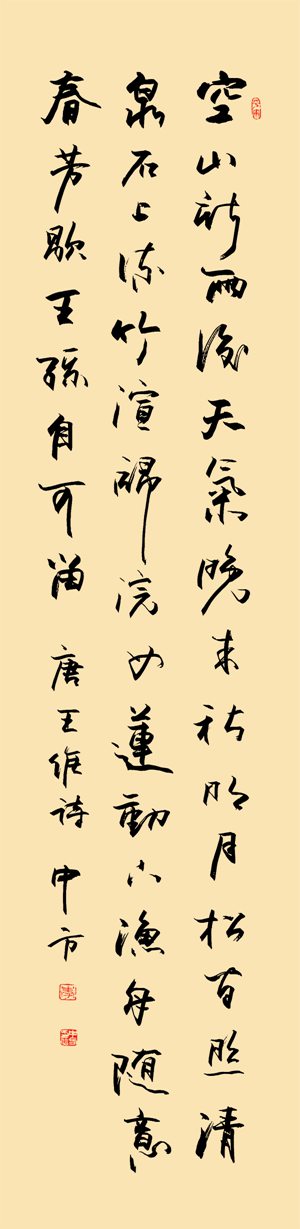 空山新雨後天氣晚来秋明月松间照清
泉石上流竹喧歸浣女蓮動下漁舟随意
春芳歇王孫自可留 唐王維詩 中方